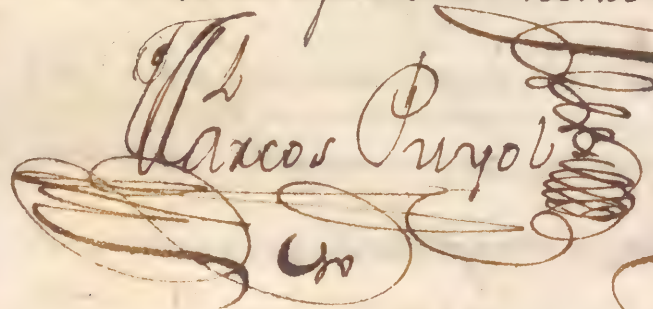 Marcos Puyol